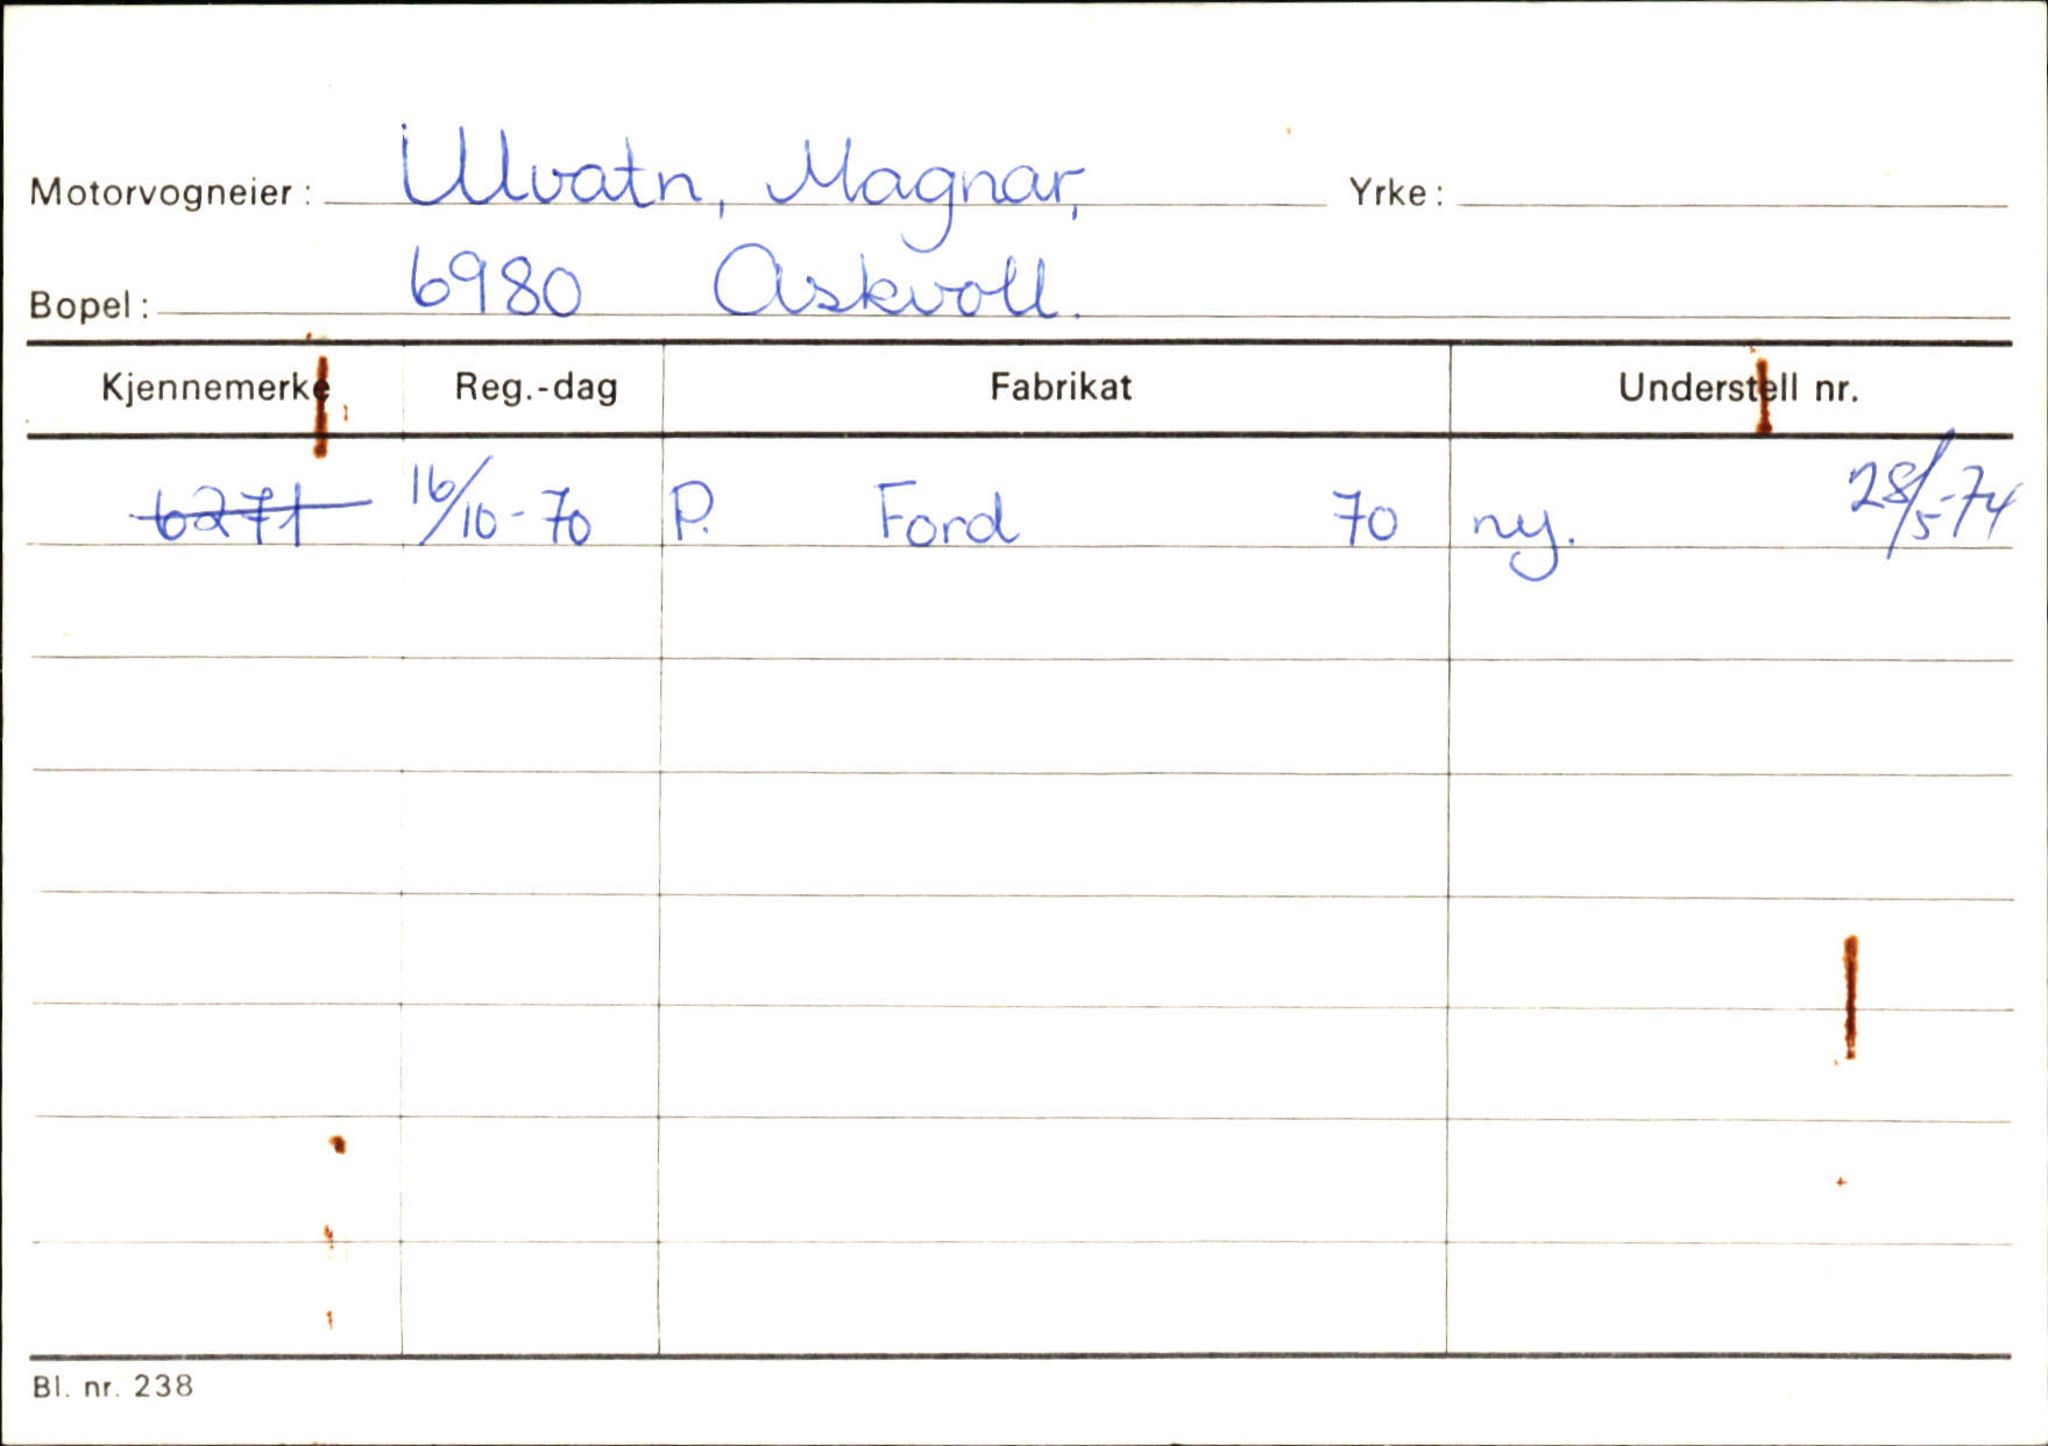 Motorvogneier: Ulvatn, Magnar, Yrke:
Bopel: 6980 Askvoll.
Kjennemerke Reg.-dag Fabrikat Understell nr.
6271 16/10-70 P. Ford 70 ny. 28/5-74
Bl. nr. 238